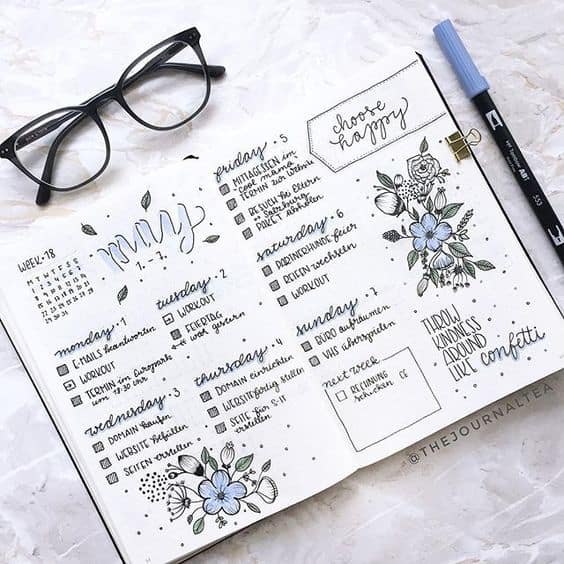 WEEK·18
M T W T F S S
may
1. - 7.
monday · 1
E-MAILS beantworten
WORKOUT
TERMIN im Europark
um 17:30 Uhr
tuesday · 2
WORKOUT
FEIERTAG
wednesday · 3
DOMAIN kaufen
WEBSITE befüllen
SEITEN erstellen
thursday · 4
DOMAIN einrichten
WEBSITE fertig stellen
SEITE für
erstellen
friday · 5
MITTAGESSEN im
cool mama
TERMIN zur Website
BESUCH bei Eltern
Salzburg
PAKET abholen
saturday · 6
feier
REIFEN wechseln
WORKOUT
sunday · 7
BÜRO aufräumen
VHS überspielen
next week
RECHNUNG
schicken
choose
happy
THROW
KINDNESS
AROUND
LIKE confetti
ABT
553
@THEJOURNALTEA